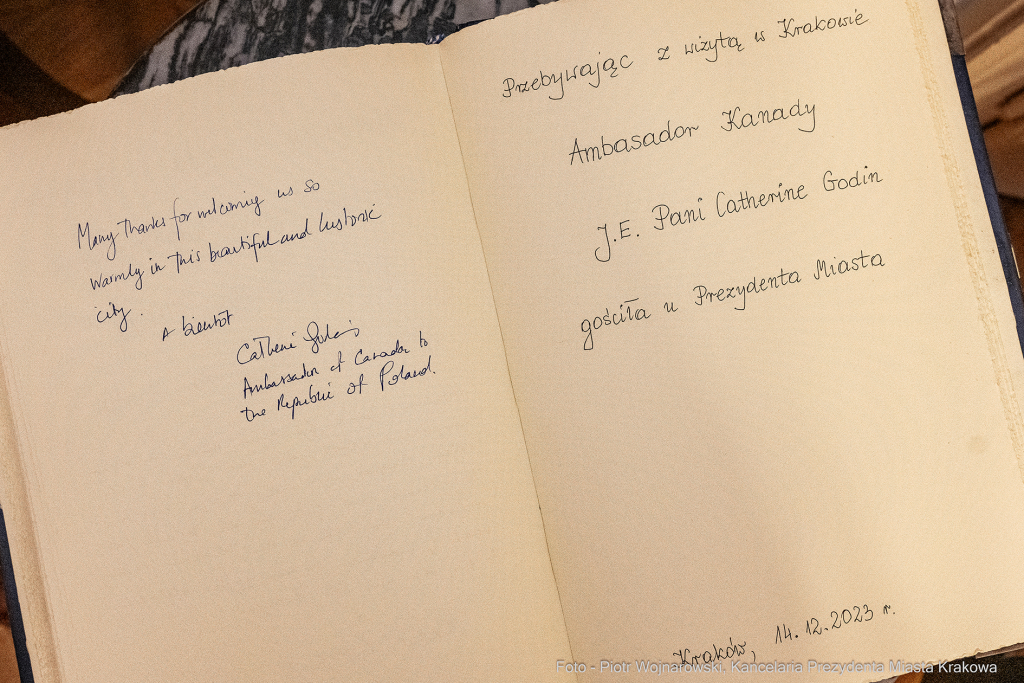 Many thanks for welcoming us so
warmly in this beautiful and historic
city.
A bientôt
Catherine Godin
Ambassador of Canada to
the Republic of Poland.
Przebywając z wizytą w Krakowie
Ambasador Kanady
J.E. Pani Catherine Godin
gościła u Prezydenta Miasta
Kraków, 14.12.2023 r.
Foto - Piotr Wojnarowski, Kancelaria Prezydenta Miasta Krakowa